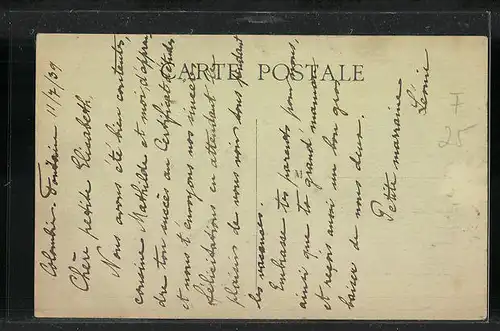 CARTE POSTALE
Colombier-Fontaine 11/7/39
Chère petite Elisabeth
Nous avons été bien contents,
cousine Mathilde et moi, d'appren-
dre ton succès au Certificat d'études
et nous t'envoyons nos sincères
félicitations en attendant le
plaisir de nous voir tous pendant
les vacances.
Embrasse tes parents pour nous,
ainsi que ta grand' maman
et reçois aussi un bon gros
baiser de nous deux.
Petite marraine
Léonie
F
25